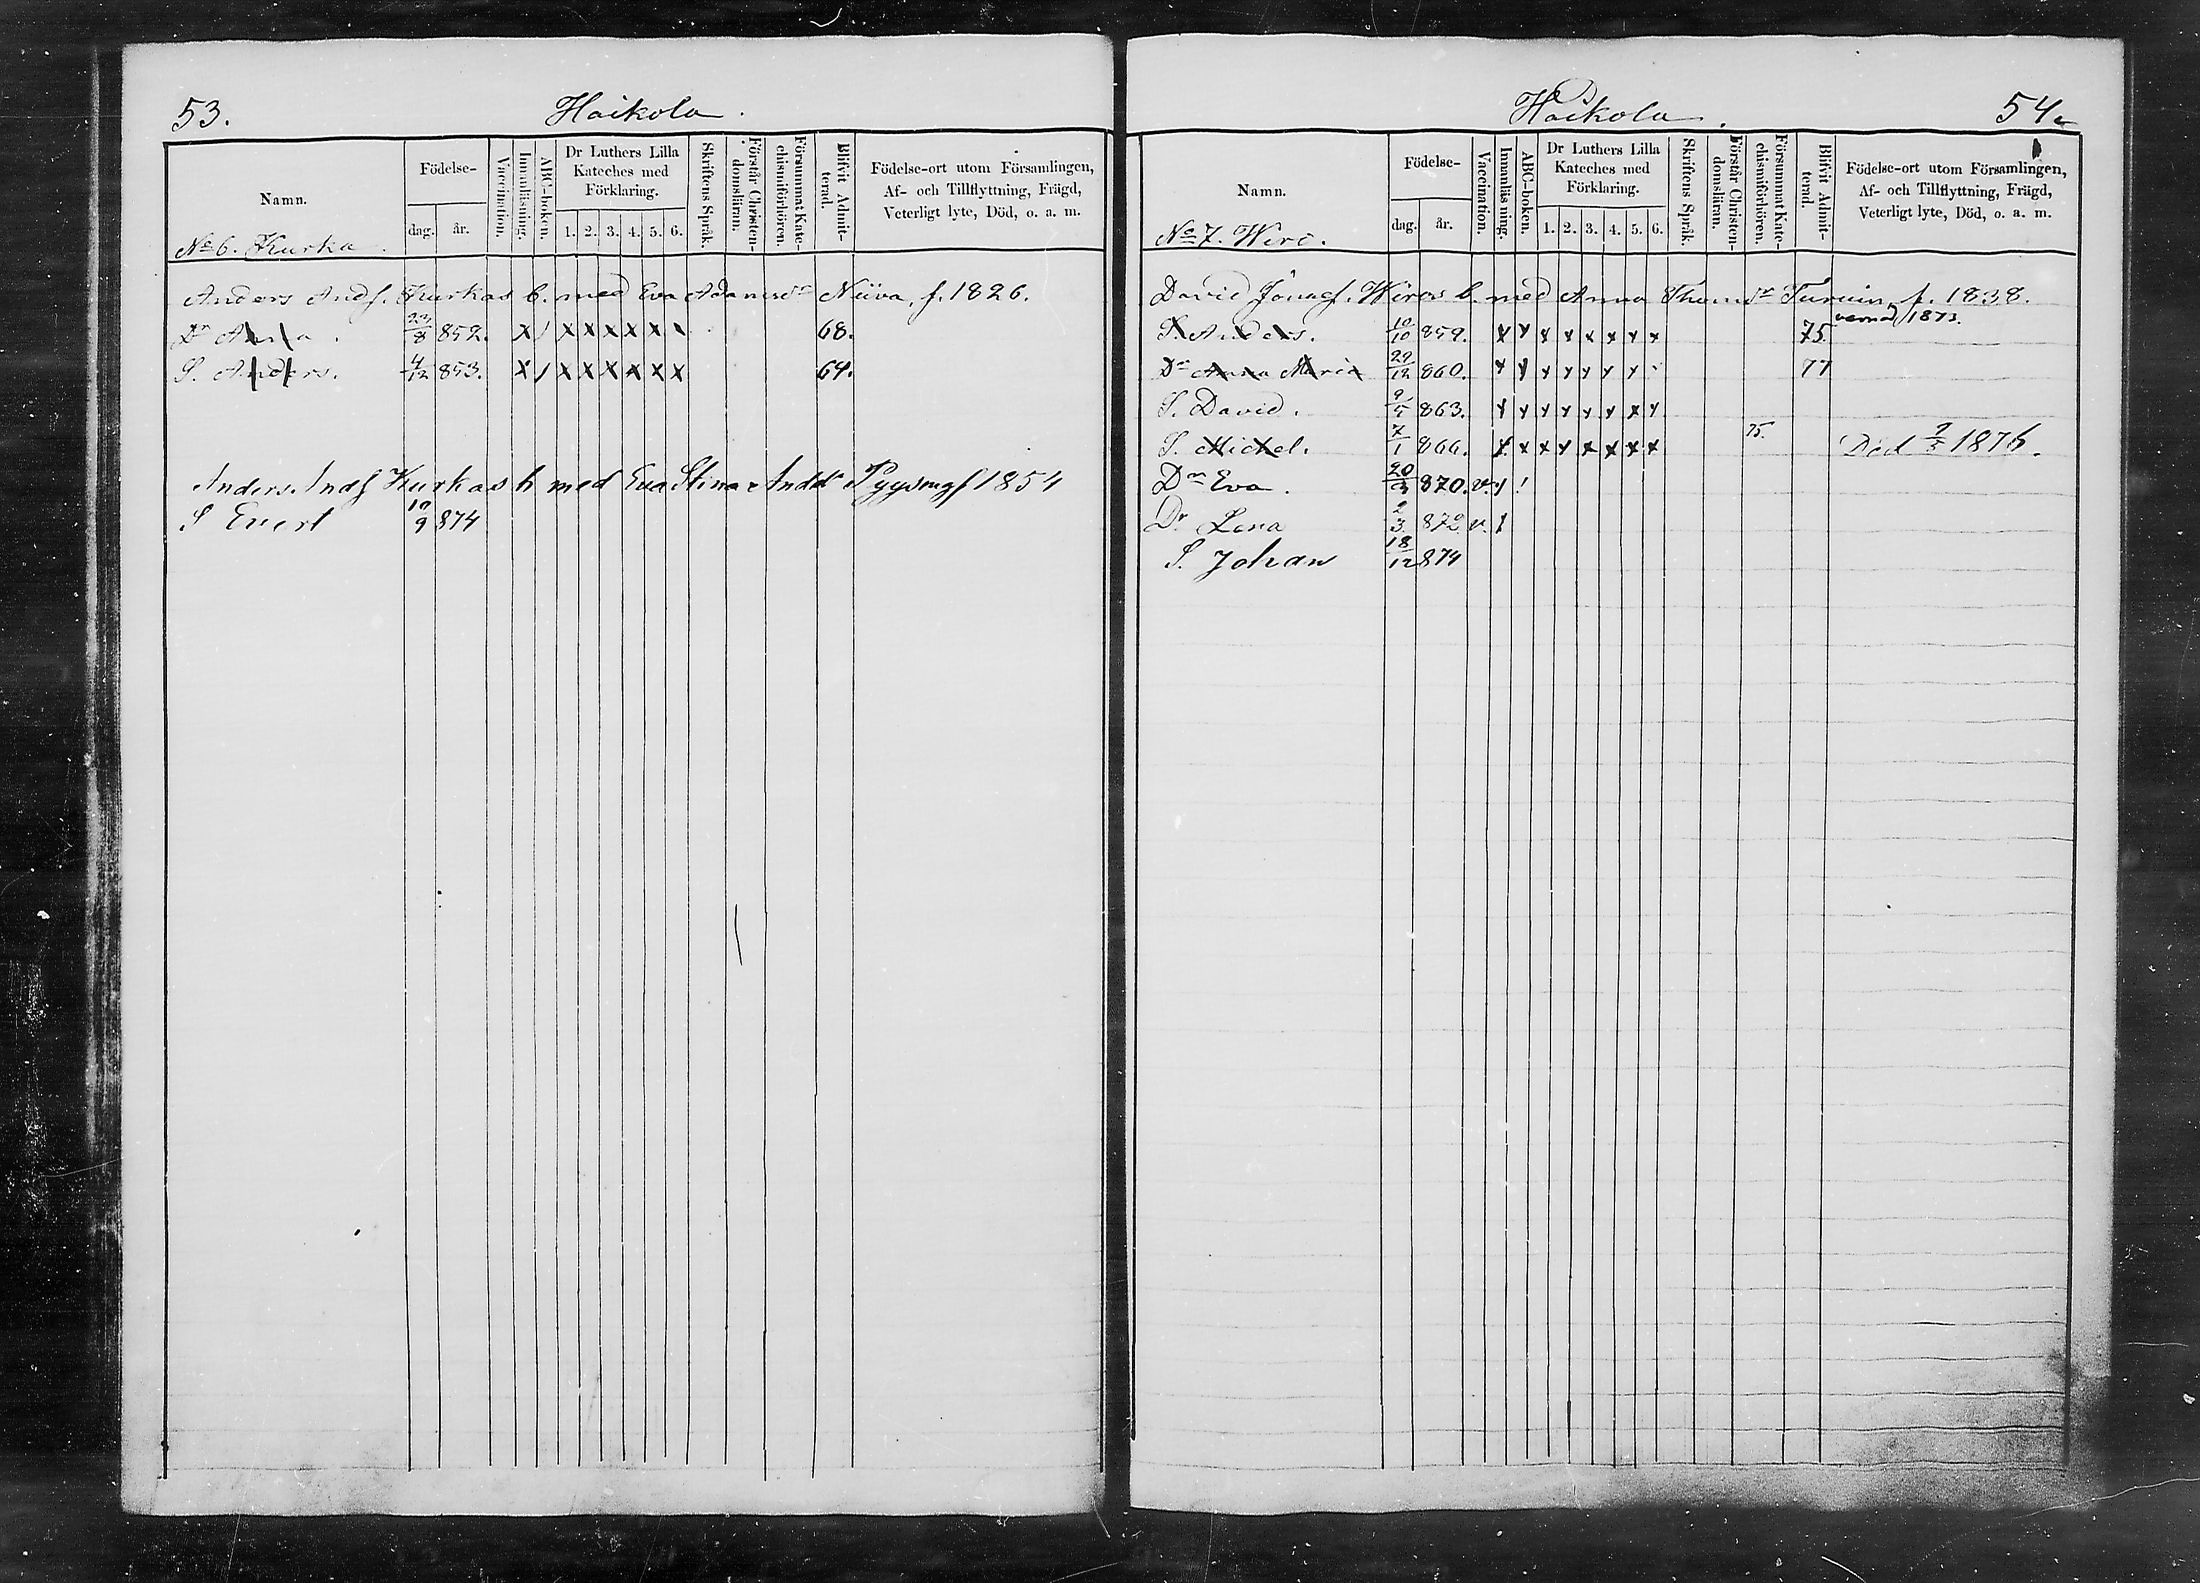 53.
Haikola.
Namn.
Födelse-
dag. år.
Vaccination.
Innanläsning.
ABC-boken.
Dr Luthers Lilla Kateches med Förklaring.
1. 2. 3. 4. 5. 6.
Skriftens Språk.
Förstår Christen-domsläran.
Försummat Kate-chismiförhören.
Blifvit Admit-terad.
Födelse-ort utom Församlingen,
Af- och Tillflyttning, Frägd,
Veterligt lyte, Död, o. a. m.
No 6. Kurka.
Anders Andf. Kurkas b. med Eva Adamsdr Niiva, f. 1826.
Dr Anna. 23/8 852. x / x x x x x x 68.
S. Anders. 4/12 853. x / x x x x x x 69.
Anders Andf Kurkas b med Eva Stina Anddr f 1854
S Evert 10/9 874
Haikola.
54
Namn.
Födelse-
dag. år.
Vaccination.
Innanläsning.
ABC-boken.
Dr Luthers Lilla Kateches med Förklaring.
1. 2. 3. 4. 5. 6.
Skriftens Språk.
Förstår Christen-domsläran.
Försummat Kate-chismiförhören.
Blifvit Admit-terad
Födelse-ort utom Församlingen,
Af- och Tillflyttning, Frägd,
Veterligt lyte, Död, o. a. m.
No 7. Wiro.
David Jönasf. Wiros b. med Anna Thomsdr Turuin, f. 1838.
1873.
S. Anders. 10/10 859. x x x x x x x x 75.
Dr Anna Maria 29/12 860. x x x x x x x 77
S. David. 9/5 863. x x x x x x x x
S. Mickel. 7/1 866. x x x x x x x x 75. Död 2/3 1876.
Dr Eva. 20/3 870. v. x !
Dr Lena 2/3 872 v. 1
S. Johan 18/12 874